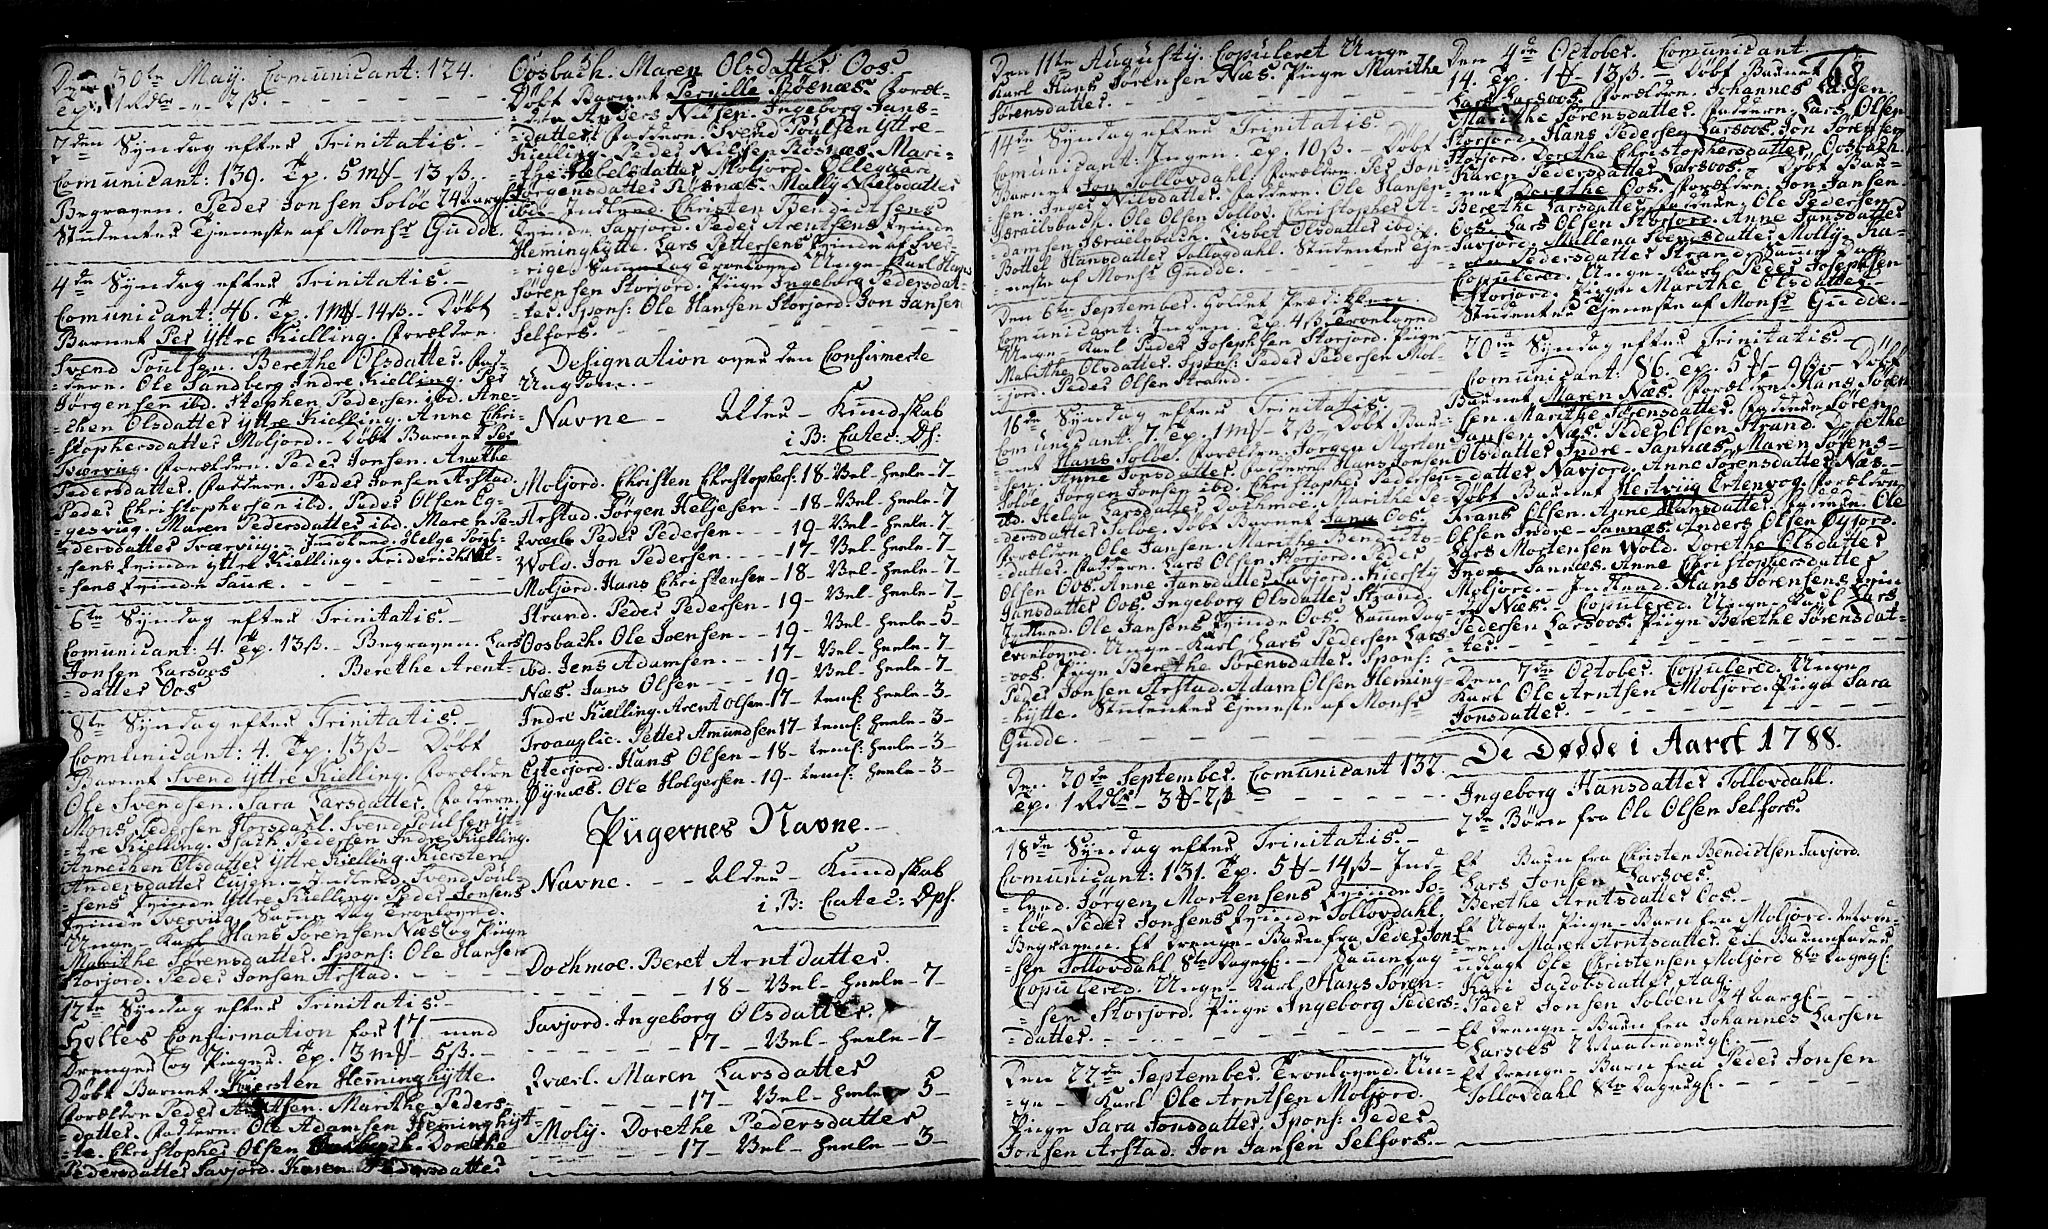 Den 30te May. Comunicant: 124.
Tp. 1 Rdlr - 2 ß.
2den Syndag efter Trinitatis.
Comunicant: 139. Tp. 5 mk - 13 ß.
Begraven. Peder Jonsen Soløe 24 aar gl.
Studenten Tieneste af Monsr Gudde.
4de Syndag efter Trinitatis.
Comunicant: 46. Tp. 1 mk - 14 ß. Døbt
Barnet Per Yttre Kielling. Forældre.
Svend Poulsen. Berethe Olsdatter. Fad-
dere. Ole Sandberg Indre Kielling. Per
Jørgensen ibd. Stephen Pedersen ibd. Ane-
chen Olsdatter Yttre Kielling. Anne Chri-
stophersdatter Moljord. Døbt Barnet Per
Tværvig. Forældre. Peder Jonsen. Anethe
Pedersdatter. Faddere. Peder Jonsen Arstad.
Peder Christophersen ibd. Peder Olsen Eg-
gesvig. Maren Pedersdatter ibd. Maren Pe-
dersdatter Tværvig. Indled. Helge Poul-
sens Qvinde Yttre Kielling. Friderich Nil-
sens Qvinde Saure.
6te Syndag efter Trinitatis.
Comunicant: 4. Tp. 13 ß. Begraven. Lars
Jonsen Larsoos. Berethe Arent-
datter Oos
8te Syndag efter Trinitatis.
Comunicant: 4. Tp. 13 ß - Døbt
Barnet Svend Yttre Kielling. Forældre
Ole Svendsen. Sara Larsdatter. Faddere.
Mons Pedersen Horsdahl. Svend Poulsen Yt-
tre Kielling. Isach Pedersen Indre Kielling.
Annechen Olsdatter Yttre Kielling. Kiersten
Andersdatter. Indled. Svend Poul-
sens Qvinde Yttre Kielling. Peder Jonsens
Qvinde Tverviig. Samme Dag Trolovede.
Unge-Karl Hans Sørensen Næs og Pige
Marithe Sørensdatter. Spons: Ole Hansen
Storjord. Peder Jonsen Arstad.
12te Syndag efter Trinitatis.
Holtes Confirmation for 17 med
Drenge og Piger. Tp. 3 mk 5 ß.
Døbt Barnet Kiersten Hemminghytte.
Forældre Peder Arntsen. Marithe Peders-
datter. Faddere. Ole Adamsen Heminghyt-
te. Christopher Olsen Dorethe
Pedersdatter Savjord. Karen Pedersdatter
Oosbach. Maren Olsdatter Oos.
Døbt Barnet Pernille Røsnæs. Foræl-
dre Anders Nilsen. Ingeborg Jans-
datter. Faddere. Svend Poulsen Yttre-
Kielling. Peder Nilsen Røsnæs. Mari-
the Hebelsdatter Moljord. Ellegaar
Jørgensdatter Røsnæs. Mally Nielsdatter
ibd. Indled. Christen Bendictsens
Qvinde Savjord. Peder Arentsens Qvinde
Hemminghytte. Lars Pettersens Qvinde af Sver-
rige. Samme Dag Trolovede Unge-Karl Hans
Sørensen Storjord. Pige Ingeborg Pedersdat-
ter. Spons: Ole Hansen Storjord. Jon Jansen
Selfors.
Designation over den Confirmerte
Ungdom.
Navne - Alder - Kundskab
i B: Catec: Ds:
Moljord. Christen Christophers: 18 - Vel - Heele - 7
Arstad. Jørgen Heljesen - 18 - Vel - Heele - 7
Qværl. Peder Pedersen - 19 - Vel - Heele - 7
Wold. Jon Pedersen - 17 - Vel - Heele - 7
Moljord. Hans Christensen - 18 - Vel - Heele - 7
Strand. Peder Pedersen - 19 - Vel - Heele - 7
Oosbach. Ole Svensen - 19 - Vel - Heele - 5
ibd. Jens Adamsen - 17 - Vel - Heele - 7
Næs. Jans Olsen - 19 - Vel - Heele - 7
Indre Kielling. Arent Olsen - 17 - temf. Heele - 3
Troauglic. Petter Amundsen 17 - temf. Heele - 3
Esterjord. Hans Olsen - 18 - temf. Heele - 3
Øynæs. Ole Holgersen - 19 - temf. Heele - 3
Pigernes Navne.
Navne. - Alder - Kundskab
i B: Catec: Dps.
Dochmoe. Beret Arntdatter.
18 - Vel - Heele - 7
Savjord. Ingeborg Olsdatter.
17 - Vel - Heele - 7
Qværl. Maren Larsdatter
17 - Vel - Heele - 5
Molj. Dorethe Pedersdatter
17 - Vel - Heele - 3
Den 11te Augusty. Copuleret Unge
Karl Hans Sørensen Næs. Pige Marithe
Sørensdatter.
14de Syndag efter Trinitatis
Comunicant: Ingen. Tp. 10 ß. Døbt
Barnet Jon Tollovdahl. Forældre. Per Jon-
sen. Inger Nilsdatter. Faddere. Ole Hansen
Israelsbach. Ole Olsen Tollov. Christopher A-
damsen Israelsbach. Lisbet Olsdatter ibd.
Bottel Hansdatter Tollogdahl. Studenten Tje-
neste af Monsr Gudde.
Den 6te September. Holdet Prædiken.
Comunicant: Ingen. Tp. 4 ß. Trolovede
Unge-Karl Peder Josephsen Storjord. Pige
Marithe Olsdatter. Spons: Peder Pedersen Mol-
jord. Peder Olsen Strand.
16de Syndag efter Trinitatis.
Comunicant: 7. Tp. 1 mk - 2 ß. Døbt Bar-
net Hans Soløe. Forældre. Jørgen Morten-
sen. Anne Jonsdatter. Faddere. Hans Jonsen
Soløe Jørgen Jonsen ibd. Christopher Pedersen
ibd. Helga Larsdatter Dochmoe. Marithe Pe-
dersdatter Soløe. Døbt Barnet Jana Oos.
Forældre. Ole Jansen. Marithe Bendicts-
datter. Faddere. Lars Olsen Storjord. Peder
Olsen Oos. Anne Jansdatter Savjord. Kiersty
Jansdatter Oos. Ingeborg Olsdatter Strand.
Indled. Ole Jansens Qvinde Oos. Samme Dag
Trolovede. Unge-Karl Lars Pedersen Lars-
oos. Pige Berethe Sørensdatter. Spons:
Peder Jonsen Arstad. Adam Olsen Heming-
hytte. Studenten Tjeneste af Monsr
Gudde.
Den 20de September. Comunicant 132
Tp. 1 Rdlr - 3 mk - 2 ß
18de Syndag efter Trinitatis.
Comunicant: 131. Tp. 5 mk - 14 ß. Ind-
leed. Jørgen Mortensens Qvinde So-
løe. Peder Jonsens Qvinde Tollovdahl.
Begraven. Et Drenge-Barn fra Peder Jon-
sen Tollovdahl 8te Dage gl. - Samme Dag
Copulered. Unge-Karl Hans Søren-
sen Storjord. Pige Ingeborg Peders-
datter.
Den 22de September. Trolovede. Un-
ge - Karl Ole Arntsen Moljord.
Pige Sara Jonsdatter. Spons: Peder
Jonsen Arstad. Jon Jansen Selfors.
Den 4de October. Comunicant.
14. Tp. 1 mk - 13 ß. - Døbt Barnet
Lars Larsoos. Forældre. Johannes Larsen.
Marithe Sørensdatter. Faddere. Lars Olsen
Storjord. Hans Pedersen Larsoos. Jon Sørensen
Storjord. Dorethe Christophersdatter Oosbach.
Karen Pedersdatter Larsoos. Døbt Bar-
net Dorethe Oos. Forældre. Jon Jansen.
Berethe Larsdatter. Faddere. Ole Pedersen
Oos. Lars Olsen Storjord. Anne Jansdatter
Savjord. Mallena Svensdatter Mollj. Ka-
ren Pedersdatter Strand. Samme Dag
Copulered. Unge-Karl Peder Josephsen
Storjord. Pige Marithe Olsdatter.
Studenten Tjeneste af Monsr Gudde.
20de Syndag efter Trinitatis.
Comunicant: 86. Tp. 5 mk - 9 ß - Døbt
Barnet Maren Næs. Forældre. Hans Søren-
sen Marithe Sørensdatter. Faddere Søren
Jansen Næs. Peder Olsen Strand. Dorethe
Olsdatter Indre-Sannæs. Maren Sørens-
datter Navjord. Anne Sørensdatter Næs.
Døbt Barnet Hertviig Ertenvog. Forældre
Frans Olsen. Anne Hansdatter. Faddere. Ole
Olsen Indre-Sannæs. Anders Olsen Øyjord.
Lars Mortensen Wold. Dorethe Olsdatter
Indre Sannæs. Anne Christophersdatter
Moljord. Indled. Hans Sørensens Qvin-
de Næs. Copulered. Unge-Karl Lars
Pedersen Larsoos. Pige Berethe Sørensdat-
ter.
Den 7de October. Copulered. Unge
Karl Ole Arntsen Moljord. Pige Sara
Jonsdatter.
De Dødde i Aaret 1788.
Ingeborg Hansdatter Tollovdahl.
2de Børn fra Ole Olsen Selfors.
Et Barn fra Christen Bendictsen Savjord.
Lars Jonsen Larsoes.
Berethe Arntsdatter Oos.
Et Uægte Pige-Barn fra Moljord. Mode-
ren Maren Arntsdatter. Til Barnefader
udlagt Ole Christensen Moljord 8te Dage gl:
Kari Jacobsdatter
Peder Jonsen Soløen 24 aar gl:
Et Drenge-Barn fra Johannes Larsen
Larsoes 2 Maaneder gl:
Et Drenge-Barn fra Peder Jonsen
Tollovdahl 8te Dage gl: